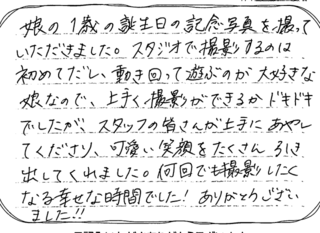 娘の1歳の誕生日の記念写真を撮って
いただきました。スタジオで撮影するのは
初めてだし、動き回って遊ぶのが大好きな
娘なので、上手く撮影ができるかドキドキ
でしたが、スタッフの皆さんが上手にあやし
てくださり、可愛い笑顔をたくさん引き
出してくれました。何回でも撮影したく
なる幸せな時間でした！ありがとうござい
ました!!